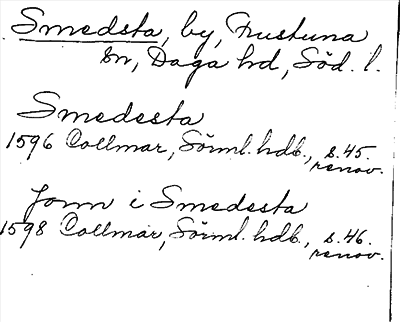 Smedsta, by, Frustuna
sn, Daga hd, Söd. l.
Smedesta
1596 Collmar, Sörml. hdb., s. 45.
renov.
Jonn i Smedesta
1598 Collmar, Sörml. hdb., s. 46.
renov.